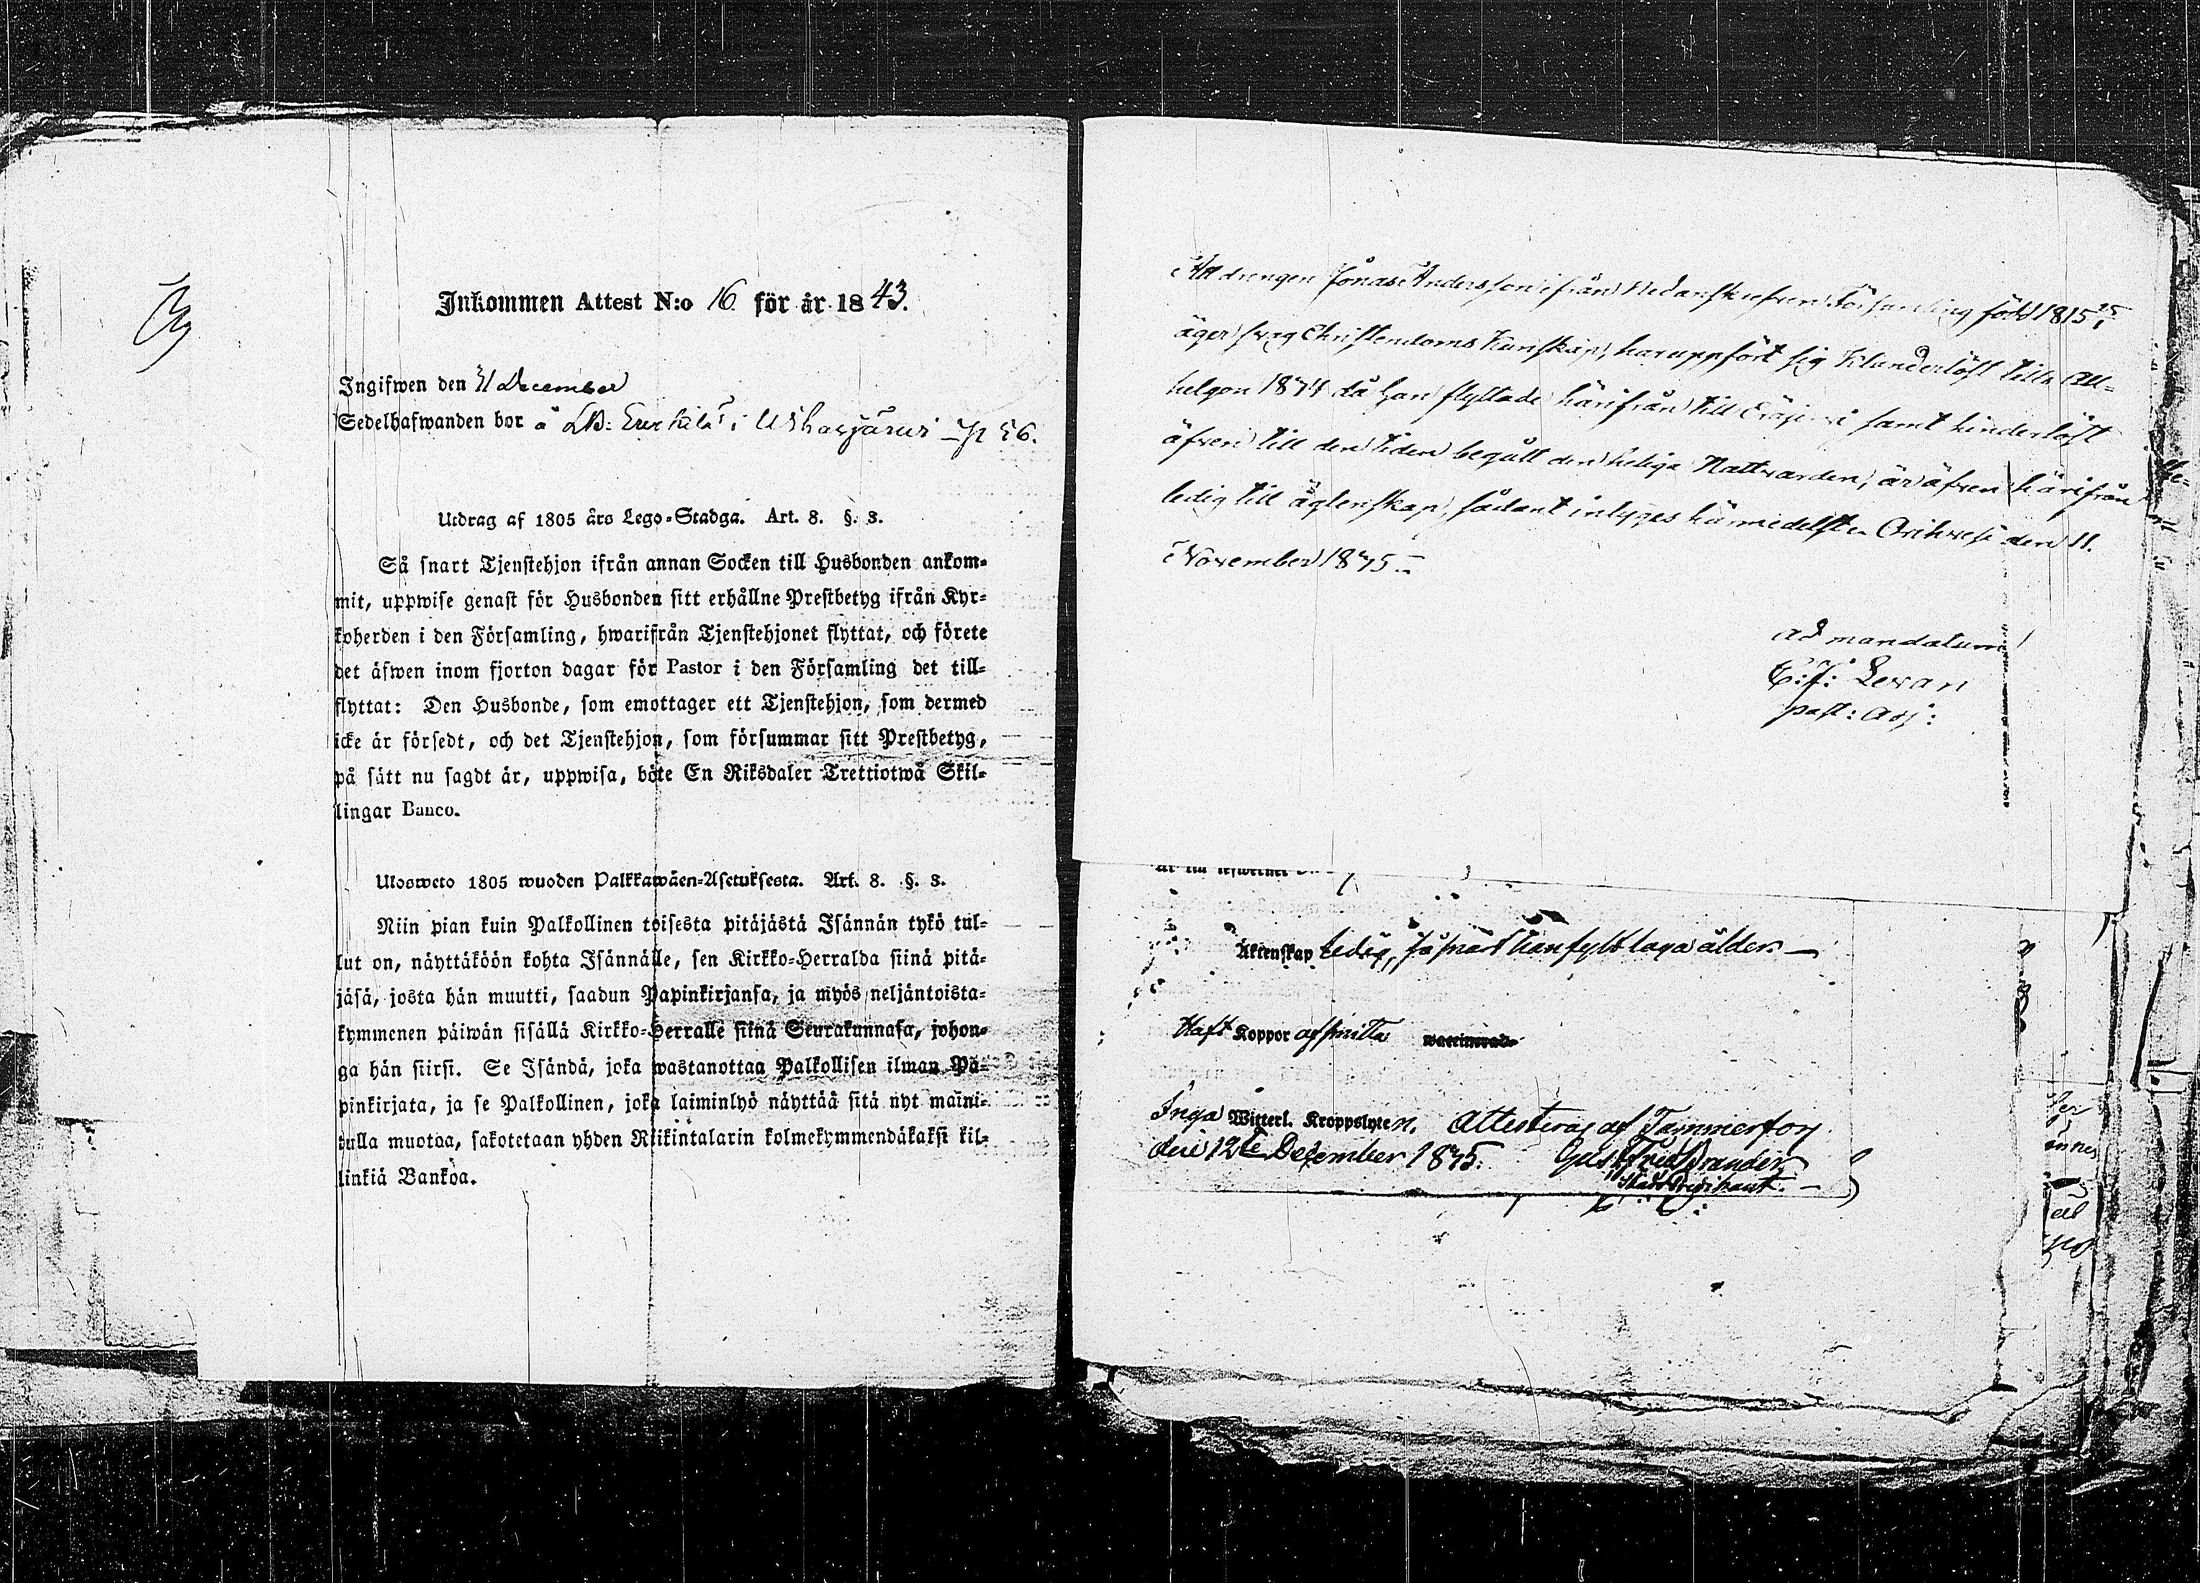 Inkommen Attest N:o 16 för år 1843.
Ingifwen den 31 December
Sedelhafwanden bor å LB: i p 56.
Utdrag af 1805 års Lego-Stadga. Art. 8. §. 3.
Så snart Tjenstehjon ifrån annan Socken till Husbonden ankom-
mit, uppwise genast för Husbonden sitt erhållne Prestbetyg ifrån Kyr-
koherden i den Församling, hwarifrån Tjenstehjonet flyttat, och förete
det äfwen inom fjorton dagar för Pastor i den Församling det till-
flyttat: Den Husbonde, som emottager ett Tjenstehjon, som dermed
icke är försedt, och det Tjenstehjon, som försummar sitt Prestbetyg,
på sätt nu sagdt är, uppwisa, böte En Riksdaler Trettiotwå Skil-
lingar Banco.
Ulosweto 1805 wuoden Palkkawäen-Asetuksesta. Art. 8. §. 3.
Niin pian kuin Palkollinen toisesta pitäjästä Isännän tykö tul-
lut on, näyttäköön kohta Isännälle, sen Kirkko-Herralda siinä pitä-
jäsä, josta hän muutti, saadun Papinkirjansa, ja myös neljäntoista-
kymmenen päiwän sisällä Kirkko-Herralle siinä Seurakunnasa, johon-
ga hän siirsi. Se Isändä, joka wastanottaa Palkollisen ilman Pa-
pinkirjata, ja se Palkollinen, joka laiminlyö näyttää sitä nyt maini-
tulla muotoa, sakotetaan yhden Riikintalarin kolmekymmendäkaksi kil-
linkiä Bankoa.
Att drengen Jonas Andersson ifrån Nedanskrefven Församling född 1815
äger svag Christendoms Kunskap, har uppfört sig klanderlöst till All-
helgon 1844 då han flyttade härifrån till Eräjerwi samt hinderlöst
äfven till den tiden begått den heliga Nattvarden, är äfven härifrån
ledig till ägtenskap, sådant intygas härmedelst. Orihvesi den 11.
November 1845.
ad mandatum
C: J: Levan
past: Adj:
Äktenskap ledig, så snart han fyllt laga ålder.
Haft Koppor af smitta waccinerad
Inga Witterl. Kroppslyten. Attesteras af Tammerfors
den 12te December 1845. Gust. Fred. Brander